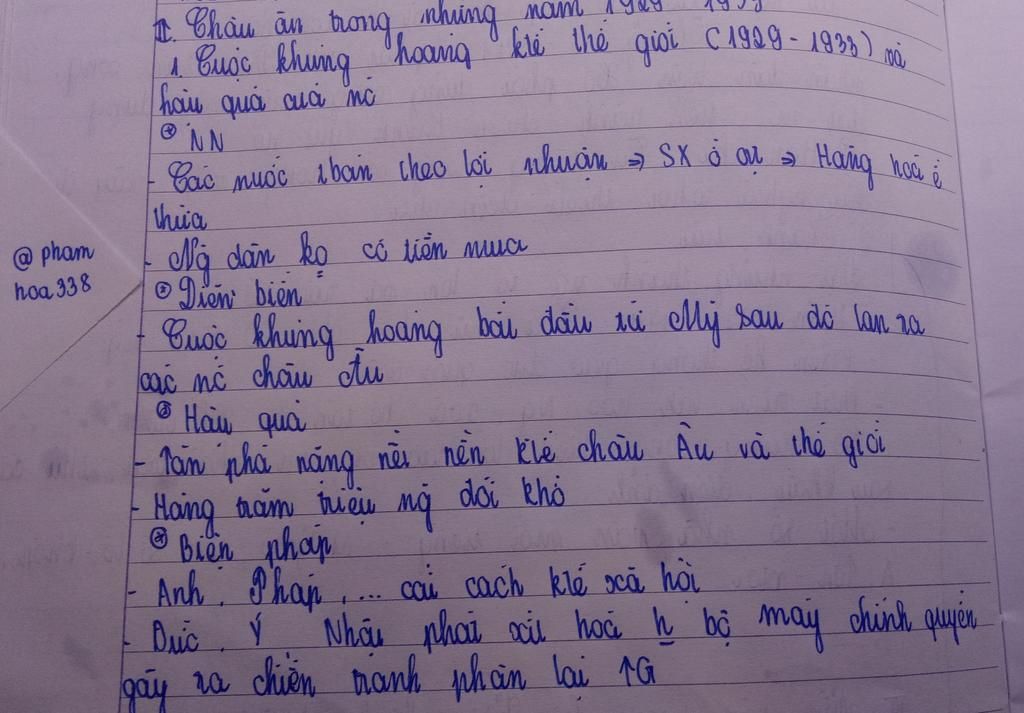 II. Châu âu trong những năm 1929 1939
1. Cuộc khủng hoảng ktế thế giới (1929 - 1933) và
hậu quả của nó
* NN
- Các nước theo lợi nhuận => SX ồ ạt => Hàng hoá ế
thừa
- Ng dân ko có tiền mua
* Diễn biến
- Cuộc khủng hoảng bắt đầu từ Mỹ sau đó lan ra
các nc châu Âu
* Hậu quả
- Tàn phá nặng nề nền ktế châu Âu và thế giới
- Hàng trăm triệu ng đói khổ
* Biện pháp
- Anh, Pháp, ... cải cách ktế xã hội
- Đức, Ý, Nhật phát xít hoá bộ máy chính quyền
gây ra chiến tranh phân lại TG
@ pham
hoa338